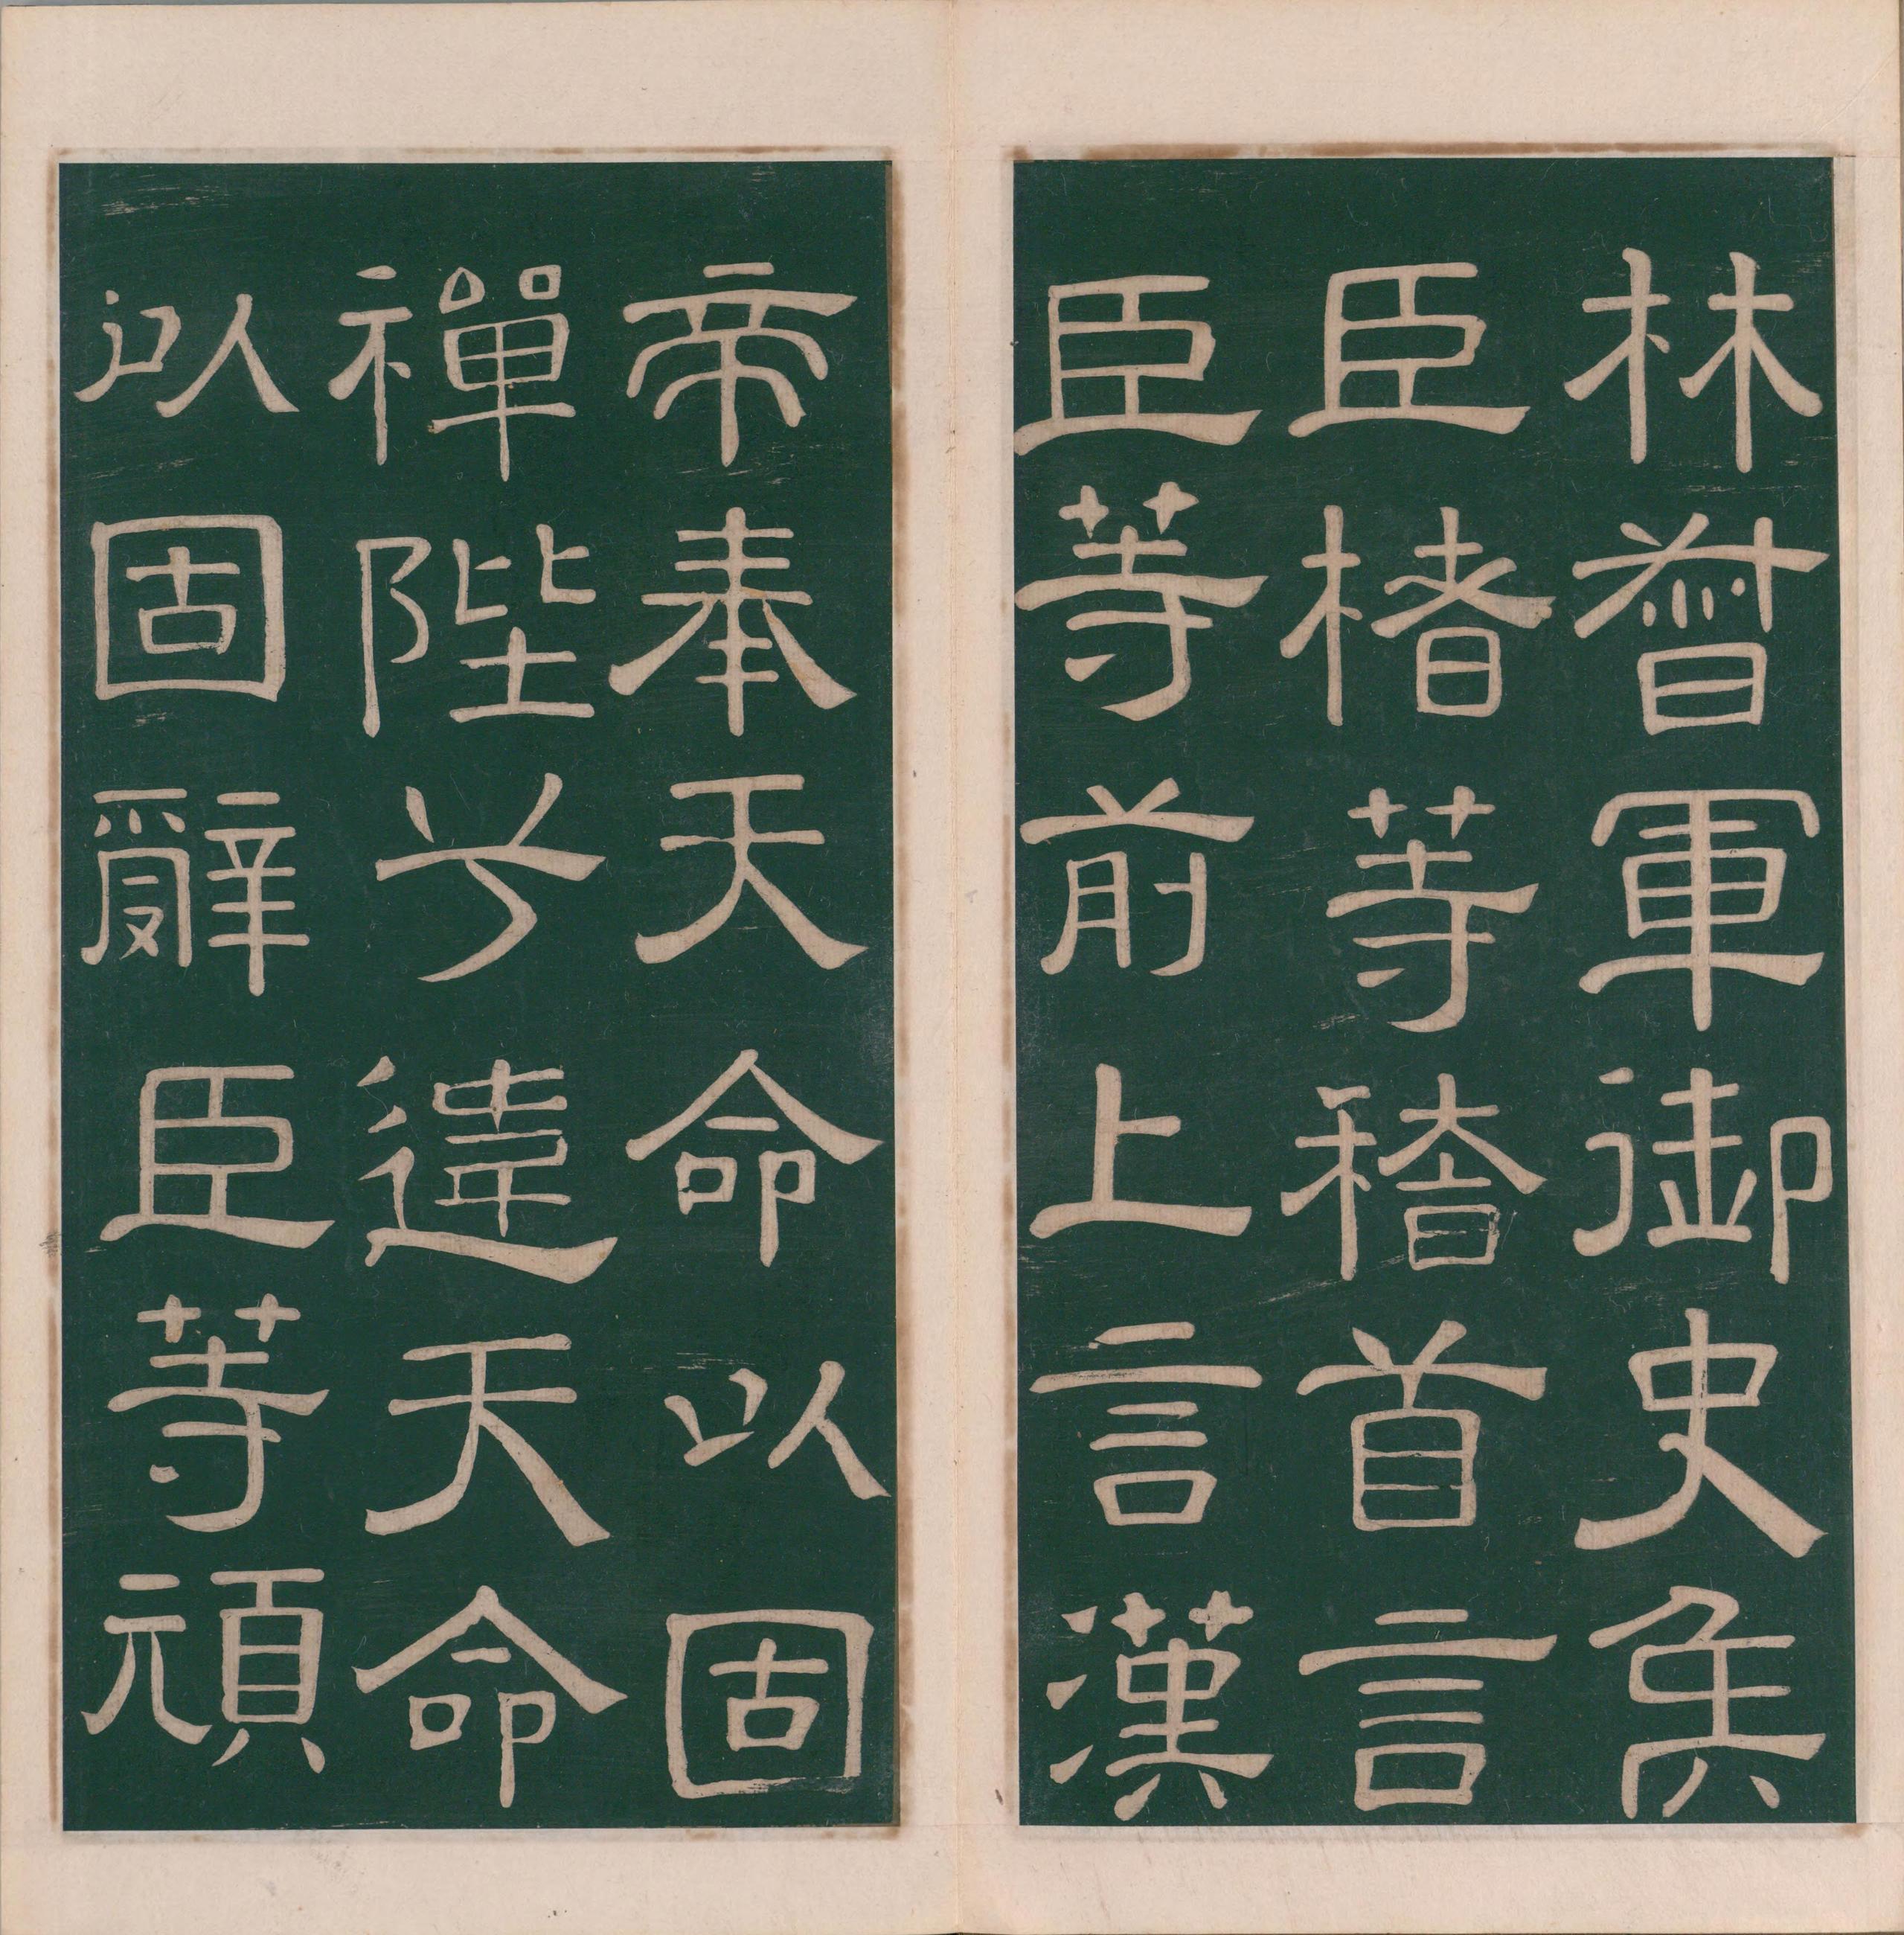 林督軍御史矦
臣楮等稽首言
臣等前上言漢
帝奉天命以固
禪陛兮違天命
以固辭臣等頑